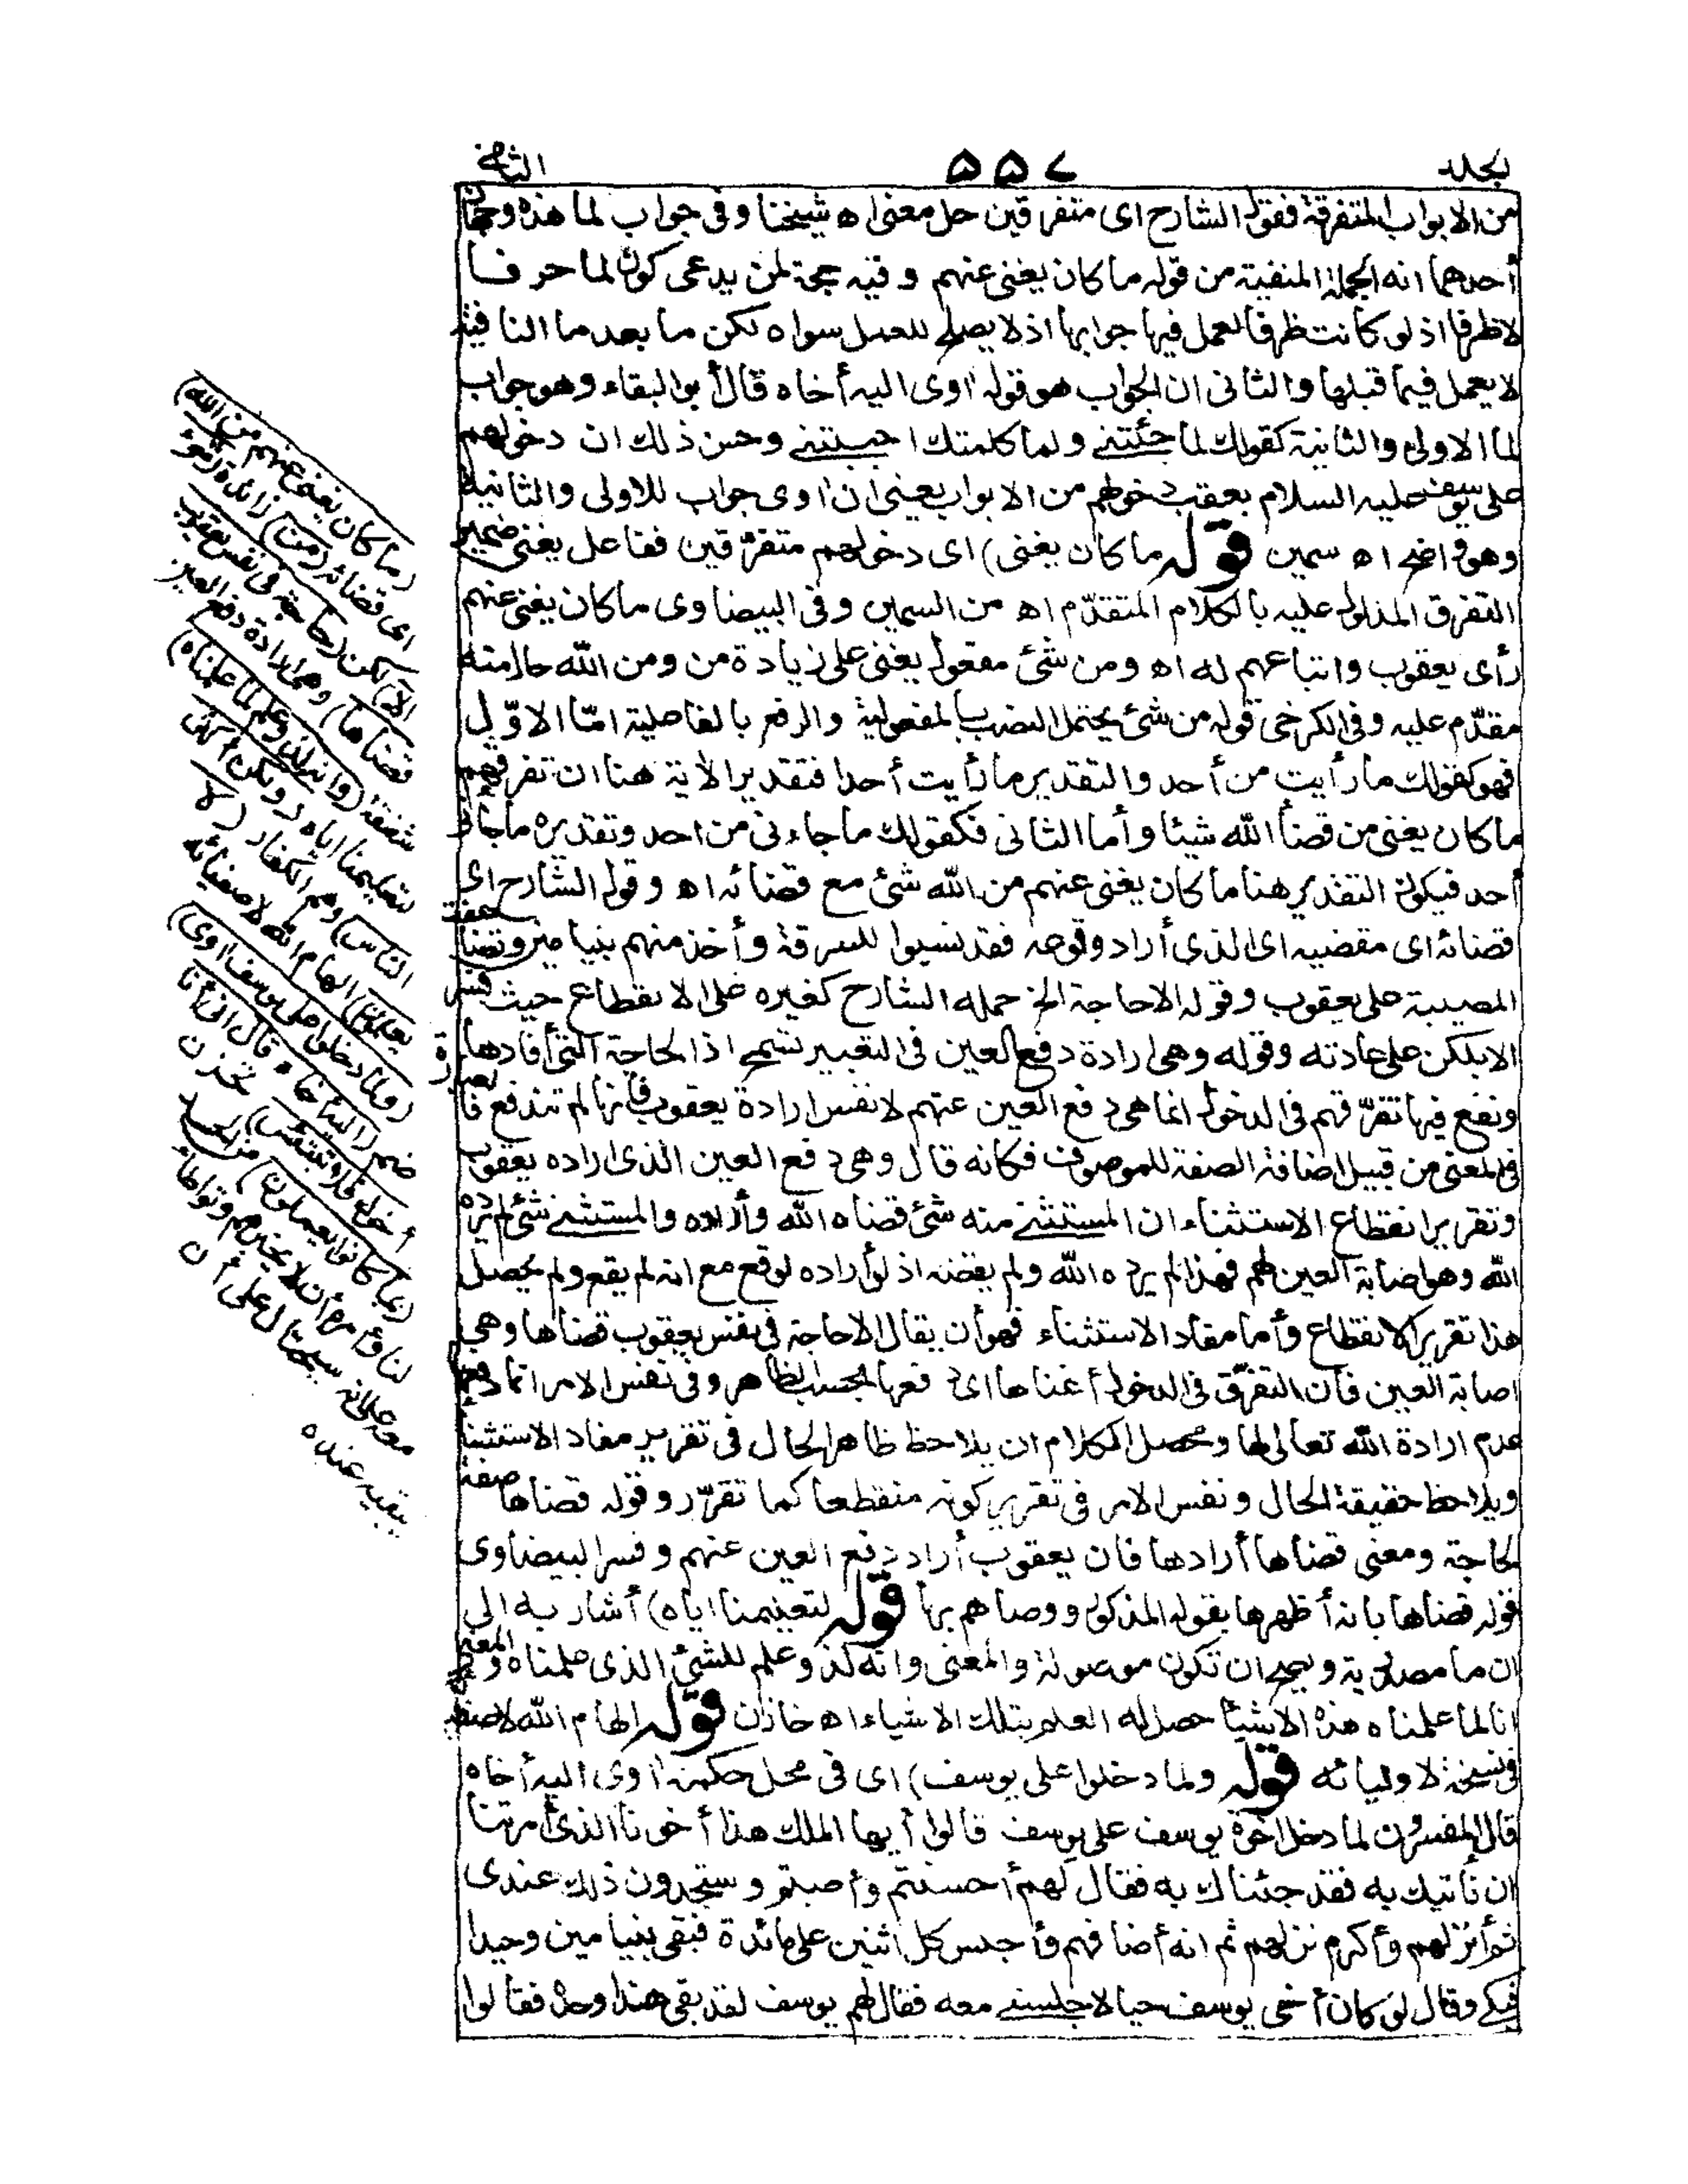 المجلد ٥٥٧ الثانى
من الابواب المتفرقة فقول الشارح اى متفرقين حل معنى اه شيخنا وفى جواب لما هذه وجهان
أحدهما انه الجملة المنفية من قوله ما كان يغنى عنهم وفيه حجة لمن يدعى كون لما حرفا
لا ظرفا اذ لو كانت ظرفا لعمل فيها جوابها اذ لا يصلح للعمل سواه لكن ما بعد ما النافية
لا يعمل فيما قبلها والثانى ان الجواب هو قوله اوى اليه أخاه قال أبو البقاء وهو جواب
لما الاولى والثانية كقولك لما جئتنى ولما كلمتك اجبتنى وحسن ذلك ان دخولهم
على يوسف عليه السلام بعقب دخولهم من الابواب يعنى ان اوى جواب للاولى والثانية
وهو واضح اه سمين قوله ما كان يغنى) اى دخولهم متفرقين ففاعل يغنى ضمير
التفرق المدلول عليه بالكلام المتقدّم اه من السمين وفى البيضاوى ما كان يغنى عنهم
رأى يعقوب واتباعهم له اه ومن شئ مفعول يغنى على زيادة من ومن الله حال منه
مقدّم عليه وفى الكرخى قوله من شئ يحتمل النصب بالمفعولية والرفع بالفاعلية امّا الاوّل
فهو كقولك ما رأيت من أحد والتقدير ما رأيت أحدا فتقدير الآية هنا ان تفرقهم
ما كان يغنى من قضاء الله شيئا وأما الثانى فكقولك ما جاءنى من احد وتقديره ما جاءنى
أحد فيكون التقدير هنا ما كان يغنى عنهم من الله شئ مع قضائه اه وقول الشارح اى
قضائه اى مقضيه اى الذى أراد وقوعه فقد نسبوا للسرقة وأخذ منهم بنيامين وتضاعفت
المصيبة على يعقوب وقوله الا حاجة الخ حمله الشارح كغيره على الانقطاع حيث فسر
الا بلكن على عادته وقوله وهى ارادة دفع العين فى التعبير تسمح اذ الحاجة التى أفادها
ونفع فيها تفرّقهم فى الدخول انما هى دفع العين عنهم لا نفس ارادة يعقوب فانها لم تندفع فالعبارة
فى المعنى من قبيل اضافة الصفة للموصوف فكانه قال وهى دفع العين الذى اراده يعقوب
وتقرير انقطاع الاستثناء ان المستثنى منه شئ قضاه الله وأراده والمستثنى شئ لم يرده
الله وهو اصابة العين لهم فهذا لم يرده الله ولم يقضه اذ لو أراده لوقع مع انه لم يقع ولم يحصل
هذا تقرير الانقطاع وأما مفاد الاستثناء فهو أن يقال الا حاجة فى نفس يعقوب قضاها وهى
اصابة العين فان التفرّق فى الدخول أغناها اى دفعها بحسب الظاهر وفى نفس الامر انما دفعها
عدم ارادة الله تعالى لها ومحصل الكلام ان يلاحظ ظاهر الحال فى تقرير مفاد الاستثناء
ويلاحظ حقيقة الحال ونفس الامر فى تقرير كونه منقطعا كما تقرّر وقوله قضاها صفة
لحاجة ومعنى قضاها أرادها فان يعقوب أراد دفع العين عنهم وفسر البيضاوى
قوله قضاها بانه أظهرها بقوله المذكور ووصاهم بها قوله لتعليمنا اياه) أشار به الى
ان ما مصدرية ويصح ان تكون موصولة والمعنى وانه لذو علم للشئ الذى علمناه والمعنى
انا لما علمناه هذه الاشياء حصل له العلم بتلك الاشياء اه خازن قوله الهام الله لاصفيائه
فى نسخة لاوليائه قوله ولما دخلوا على يوسف) اى فى محل حكمه اوى اليه أخاه
قال المفسرون لما دخل اخوة يوسف على يوسف قالوا أيها الملك هذا أخونا الذى أمرتنا
ان نأتيك به فقد جئناك به فقال لهم أحسنتم وأصبتم وستجدون ذلك عندى
ثم أنزلهم وأكرم نزلهم ثم انه أضافهم وأجلس كل اثنين على مائدة فبقى بنيامين وحيدا
فبكى وقال لو كان أخى يوسف حيا لاجلسنى معه فقال لهم يوسف لقد بقى هذا وحده فقالوا
(ما كان يغنى عنهم من الله)
اى قضائه (من) زائدة (شئ
الا) لكن (حاجة فى نفس يعقوب
قضاها) وهى ارادة دفع العين
شفقة (وانه لذو علم لما علمناه)
لتعليمنا اياه (ولكن أكثر
الناس) وهم الكفار (لا
يعلمون) الهام الله لاصفيائه
(ولما دخلوا على يوسف اوى)
ضم (اليه أخاه قال انى أنا
أخوك فلا تبتئس) تحزن
(بما كانوا يعملون) من الحسد
لنا وأمره أن لا يخبرهم وتواطأ
معه على انه سيحتال على أن
يبقيه عنده